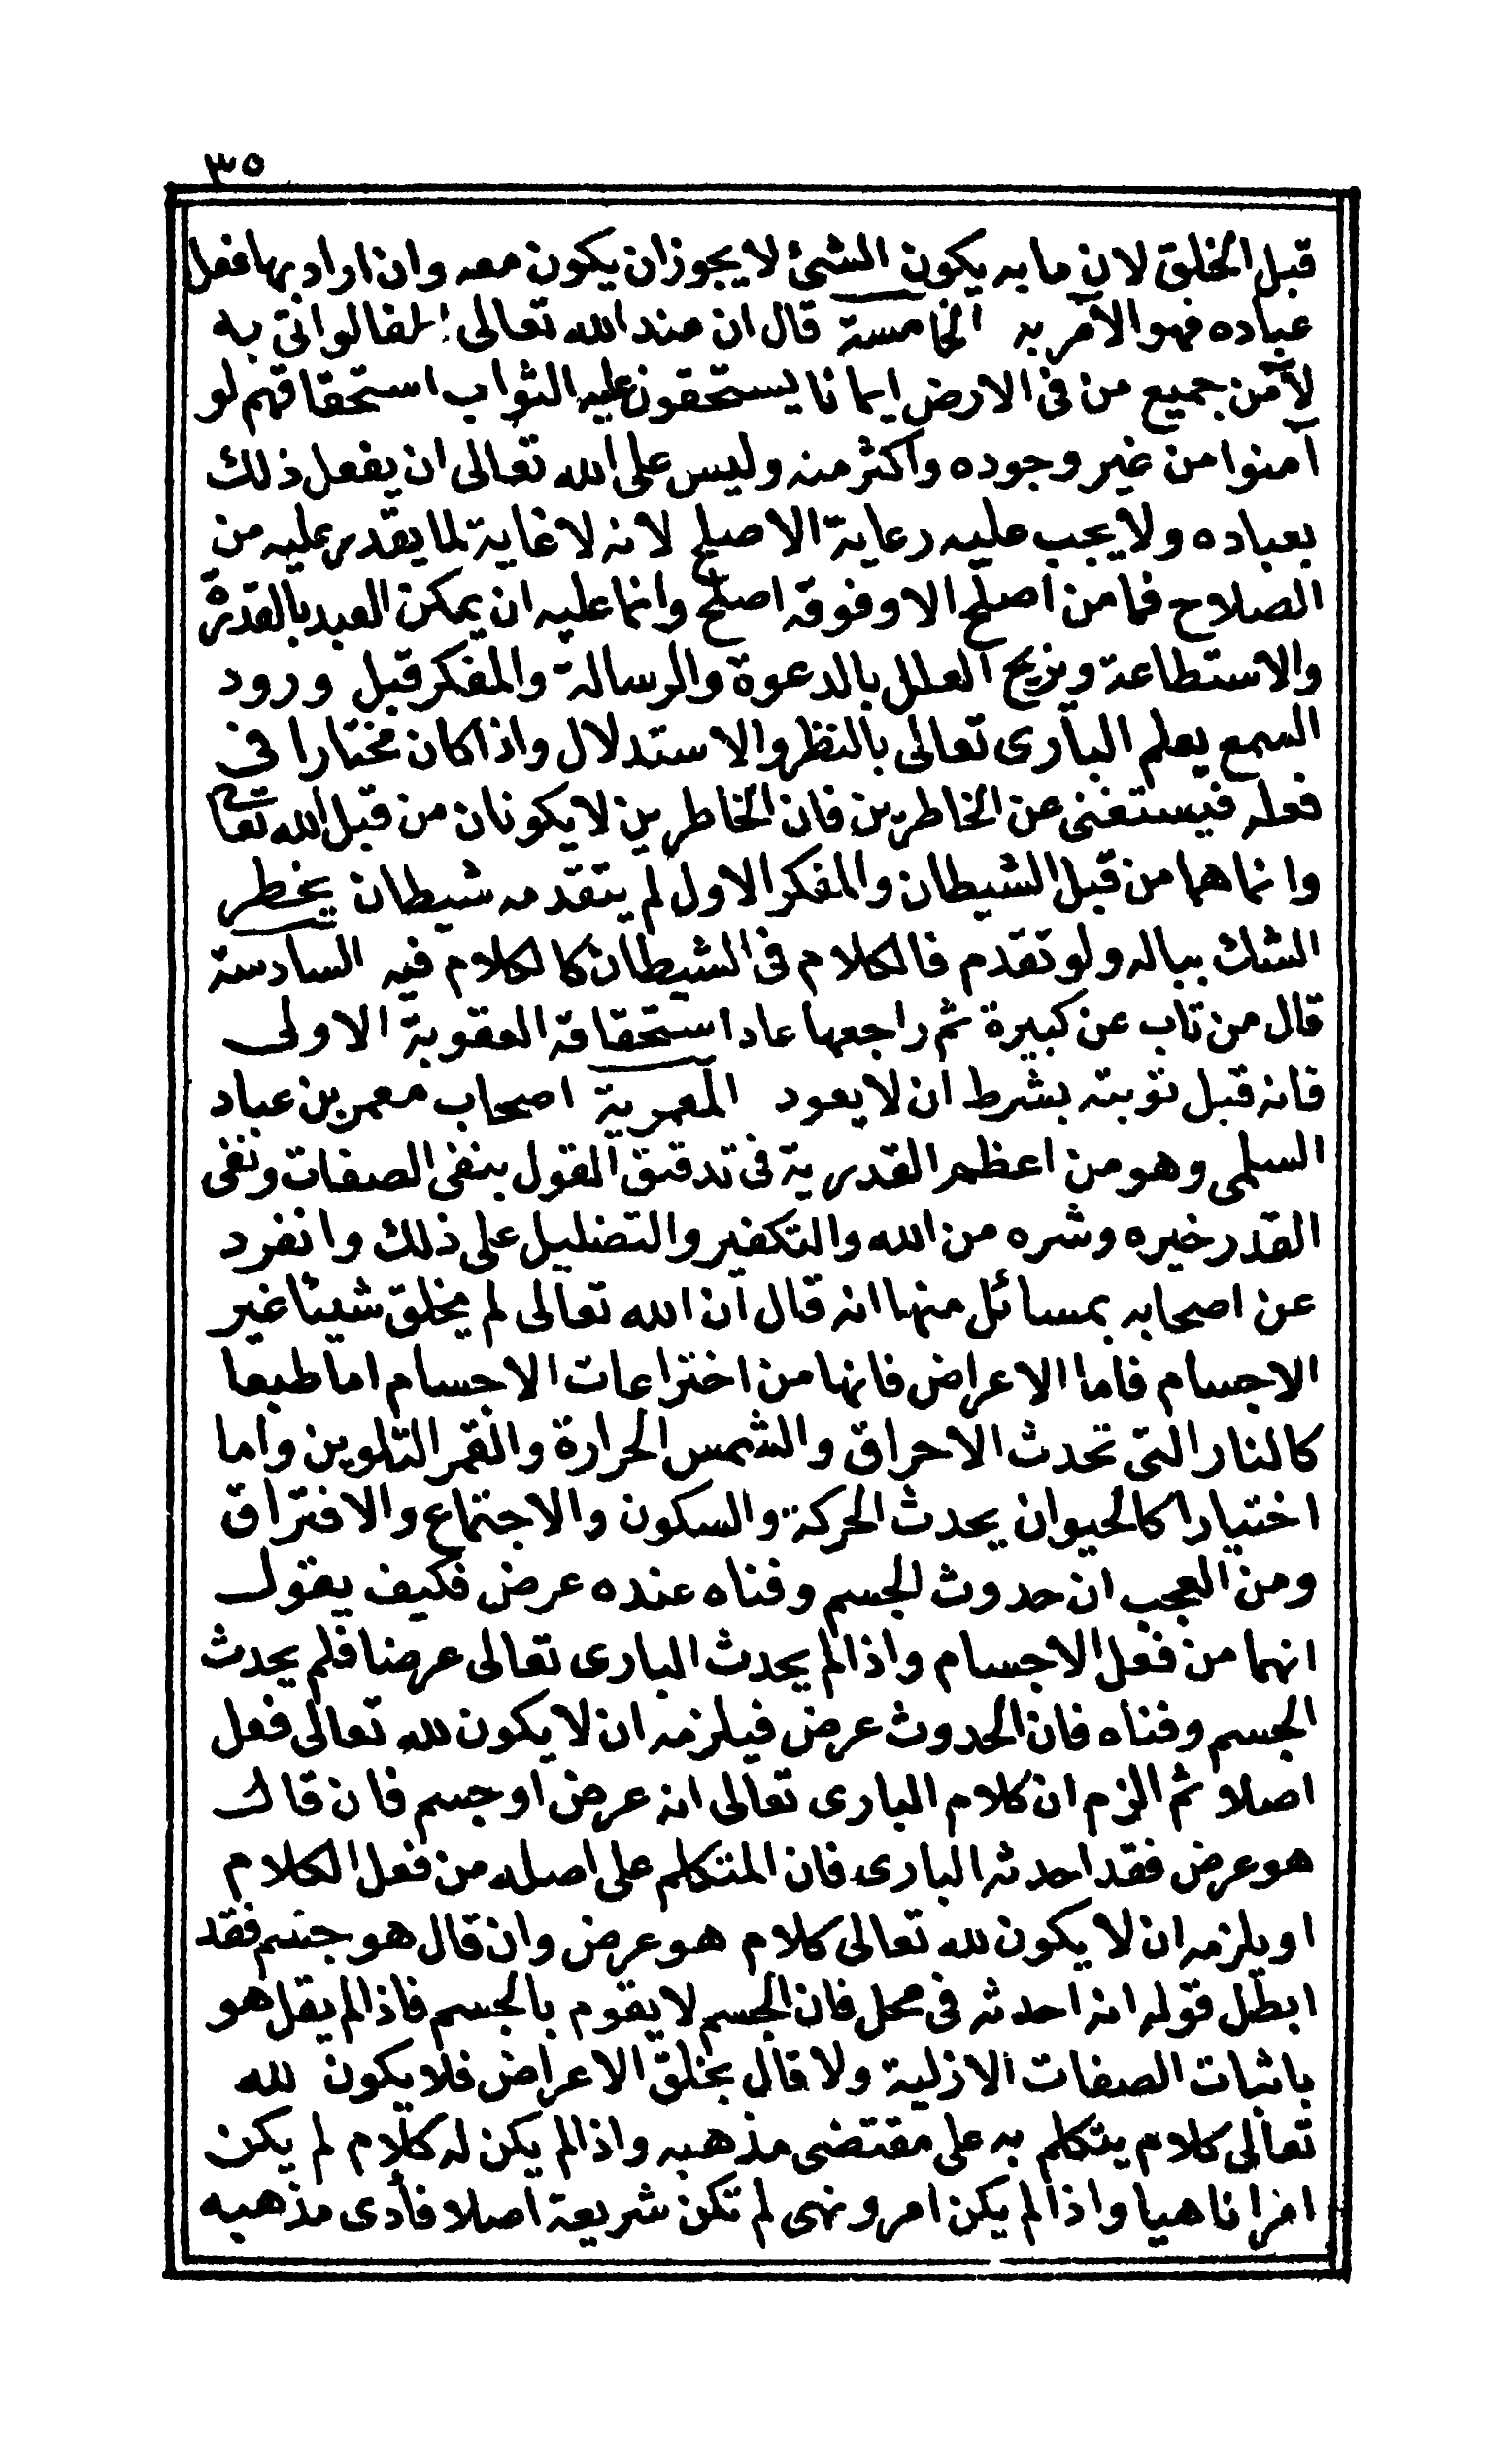 ٣٥
قبل الخلق لان ما به يكون الشئ لا يجوز ان يكون معه وان اراد بها فعل
عباده فهو الآمر به الخامسة قال ان عند الله تعالى لطفا لو اتى به
لآمن جميع من فى الارض ايمانا يستحقون عليه الثواب استحقاقهم لو
آمنوا من غير وجوده واكثر منه وليس على الله تعالى ان يفعل ذلك
بعباده ولا يجب عليه رعاية الاصلح لانه لا غاية لما يقدر عليه من
الصلاح فما من اصلح الا وفوقه اصلح وانما عليه ان يمكن العبد بالقدرة
والاستطاعة ويزيح العلل بالدعوة والرسالة والمفكر قبل ورود
السمع يعلم البارى تعالى بالنظر والاستدلال واذا كان مختارا فى
فعله فيستغنى عن الخاطرين فان الخاطرين لا يكونان من قبل الله تعالى
وانما هما من قبل الشيطان والمفكر الاول لم يتقدمه شيطان يخطر
الشك بباله ولو تقدم فالكلام فى الشيطان كالكلام فيه السادسة
قال من تاب عن كبيرة ثم راجعها عاد استحقاقه العقوبة الاولى
فانه قبل توبته بشرط ان لا يعود المعمرية اصحاب معمر بن عباد
السلمى وهو من اعظم القدرية فى تدقيق القول بنفى الصفات ونفى
القدر خيره وشره من الله والتكفير والتضليل على ذلك وانفرد
عن اصحابه بمسائل منها انه قال ان الله تعالى لم يخلق شيئا غير
الاجسام فاما الاعراض فانها من اختراعات الاجسام اما طبعا
كالنار التى تحدث الاحراق والشمس الحرارة والقمر التلوين واما
اختيارا كالحيوان يحدث الحركة والسكون والاجتماع والافتراق
ومن العجب ان حدوث الجسم وفناه عنده عرض فكيف يقول
انهما من فعل الاجسام واذا لم يحدث البارى تعالى عرضا فلم يحدث
الجسم وفناه فان الحدوث عرض فيلزمه ان لا يكون لله تعالى فعل
اصلا ثم الزم ان كلام البارى تعالى انه عرض او جسم فان قال
هو عرض فقد احدثه البارى فان المتكلم على اصله من فعل الكلام
او يلزمه ان لا يكون لله تعالى كلام هو عرض وان قال هو جسم فقد
ابطل قوله انه احدثه فى محل فان الجسم لا يقوم بالجسم فاذا لم يقل هو
باثبات الصفات الازلية ولا قال بخلق الاعراض فلا يكون لله
تعالى كلام يتكلم به على مقتضى مذهبه واذا لم يكن له كلام لم يكن
امرا ناهيا واذا لم يكن امر ونهى لم تكن شريعة اصلا فأدى مذهبه